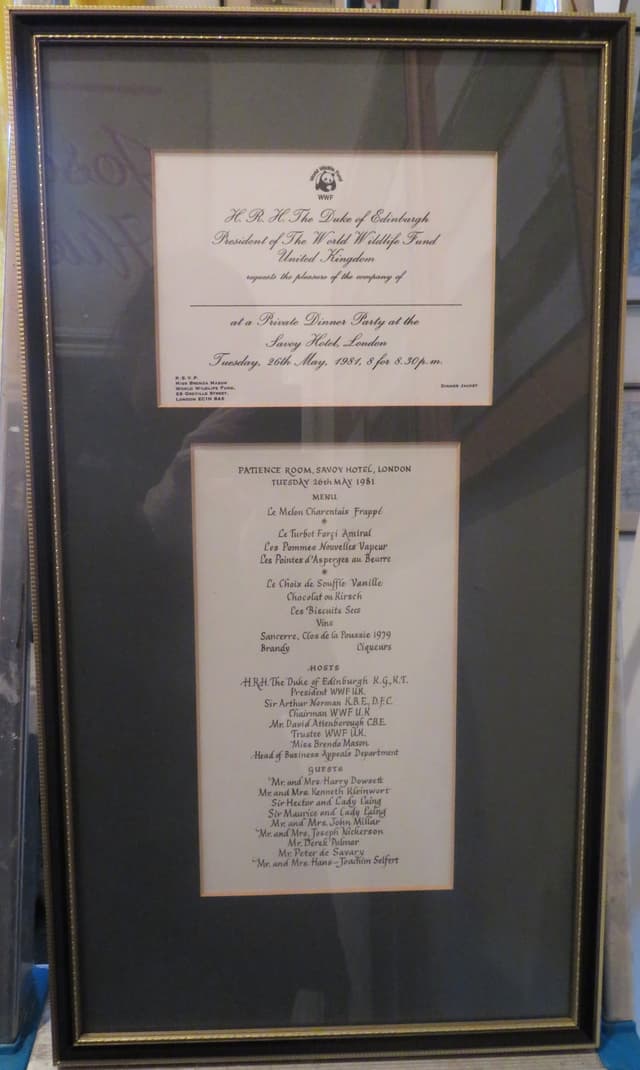 World Wildlife Fund
WWF
H. R. H. The Duke of Edinburgh
President of The World Wildlife Fund
United Kingdom
requests the pleasure of the company of
at a Private Dinner Party at the
Savoy Hotel, London
Tuesday, 26th May, 1981, 8 for 8.30p.m.
R.S.V.P.
Miss Brenda Mason
World Wildlife Fund,
29 Greville Street,
London EC1N 8AX
Dinner Jacket
PATIENCE ROOM, SAVOY HOTEL, LONDON
TUESDAY 26th MAY 1981
MENU
Le Melon Charentais Frappé
*
Le Turbot Farçi Amiral
Les Pommes Nouvelles Vapeur
Les Pointes d'Asperges au Beurre
*
Le Choix de Souffle Vanille
Chocolat ou Kirsch
Les Biscuits Secs
Vins
Sancerre, Clos de la Poussie 1979
Brandy Liqueurs
HOSTS
H.R.H. The Duke of Edinburgh K.G., K.T.
President WWF U.K.
Sir Arthur Norman K.B.E., D.F.C.
Chairman WWF U.K
Mr. David Attenborough C.B.E.
Trustee WWF U.K.
Miss Brenda Mason
Head of Business Appeals Department
GUESTS
Mr. and Mrs. Harry Dowsett
Mr. and Mrs. Kenneth Kleinwort
Sir Hector and Lady Laing
Sir Maurice and Lady Laing
Mr. and Mrs. John Millar
Mr. and Mrs. Joseph Nickerson
Mr. Derek Palmar
Mr. Peter de Savary
Mr. and Mrs. Hans-Joachim Seifert